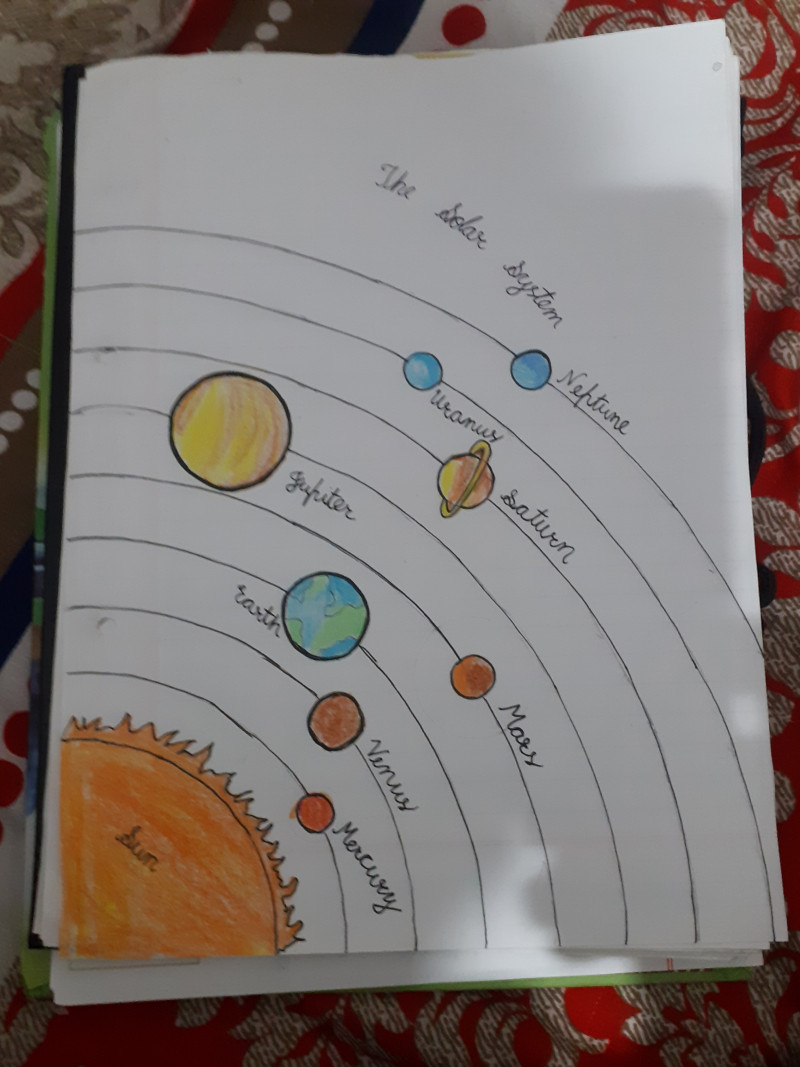 The Solar System
Neptune
Uranus
Saturn
Jupiter
Earth
Mars
Venus
Mercury
Sun